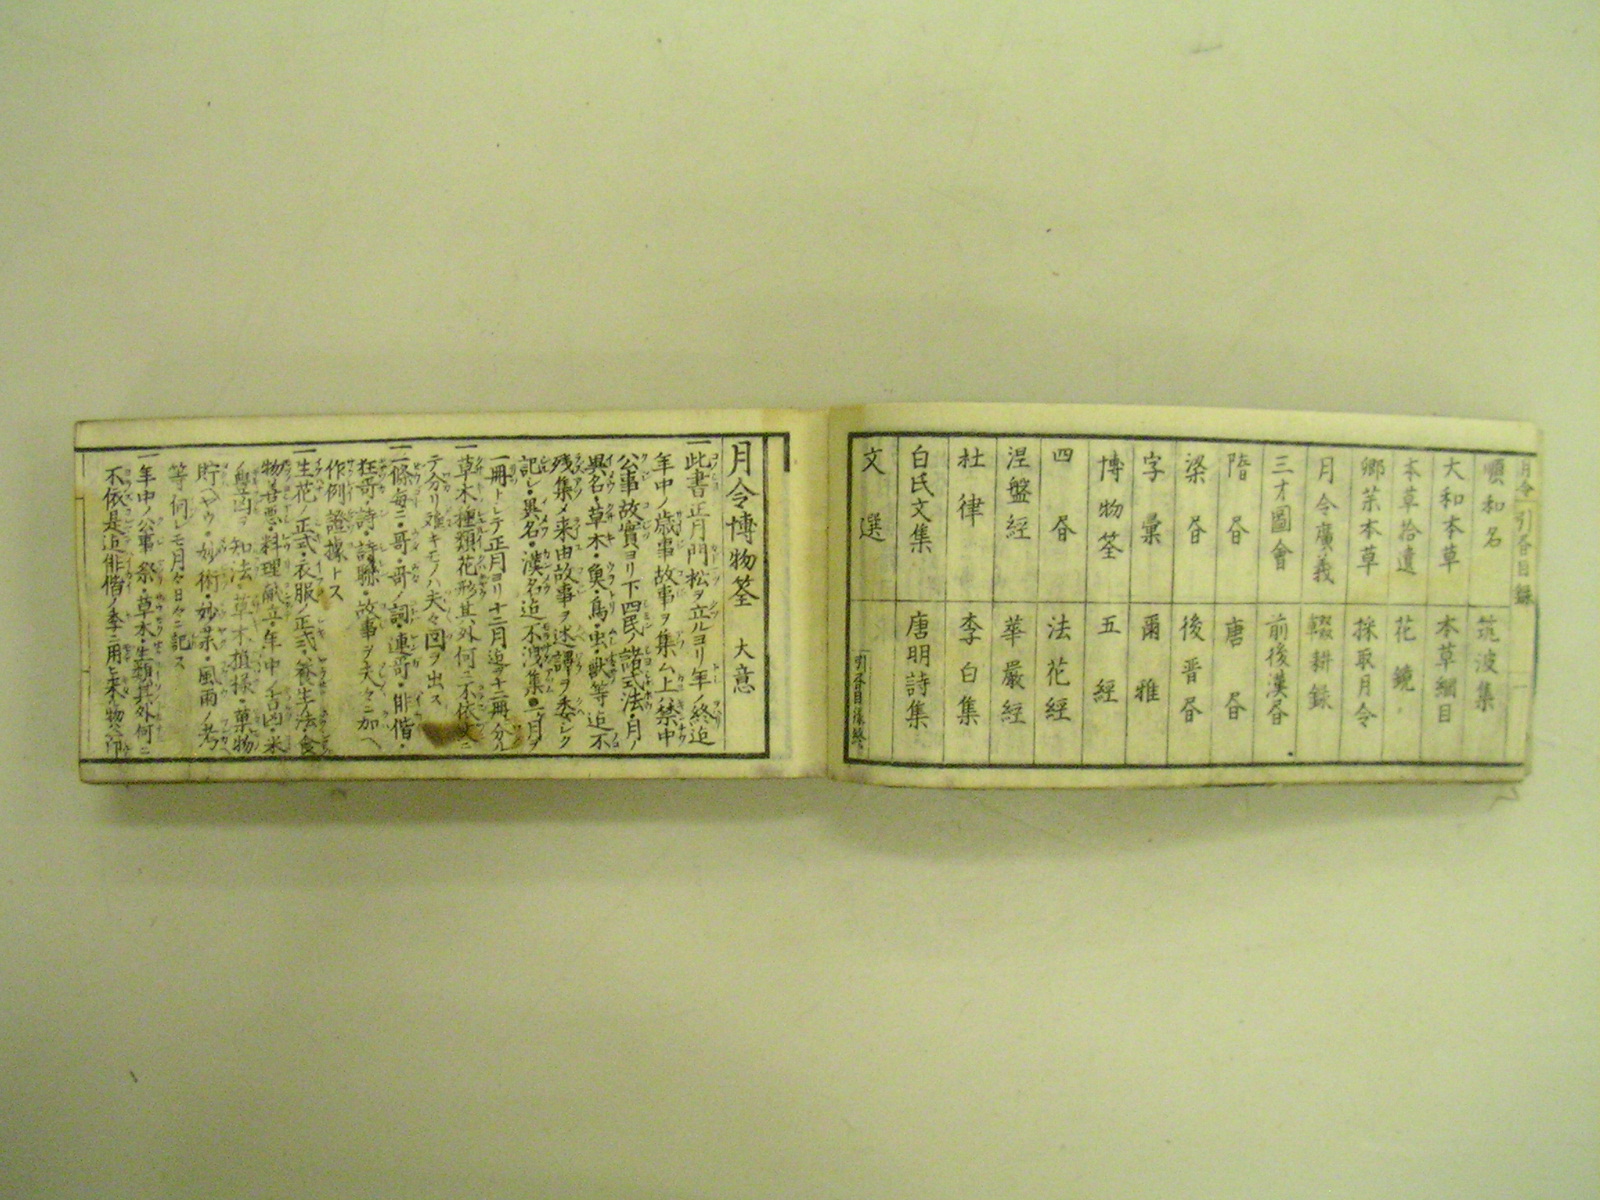 月令引書目録
順和名 筑波集
大和本草 本草綱目
本草拾遺 花鏡
郷菜本草 採取月令
月令廣義 輟耕録
三才圖會 前後漢書
隋書 唐書
梁書 後晋書
字彙 爾雅
博物筌 五經
四書 法花經
涅盤經 華嚴經
杜律 李白集
白氏文集 唐明詩集
文選
引書目録終
月令博物筌 大意
一此書正月門松ヲ立ルヨリ年ノ終迠
年中ノ歳事故事ヲ集ム上ハ禁中
公事故實ヨリ下四民ノ諸式法・月ノ
異名・草木・魚・鳥・虫・獣等迠不
残集メ来由故事ヲ述譯ヲ委シク
記シ・異名・漢名迠不洩集
一冊トシテ正月ヨリ十二月迠ヲ十二冊ニ分ル
一草木ノ種類花形其外何ニ不依文ニ
テ分リ難キモノハ夫々図ヲ出ス
一條毎ニ・哥・哥ノ詞・連哥・俳偕・
狂哥・詩・詩聯・故事ヲ夫々ニ加ヘ
作例證據トス
一生花ノ正式・衣服ノ正式・養生ノ法・食
物善悪・料理献立・年中ノ吉凶・米
知法・草木植様・草物
貯ヘヤウ・妙術・妙薬・風雨ノ考
等何レモ月々日々ニ記ス
一年中ノ公事・祭・草木・生類其外何ニ
不依是迠俳偕ノ季ニ用ヒ来ル物ハ印